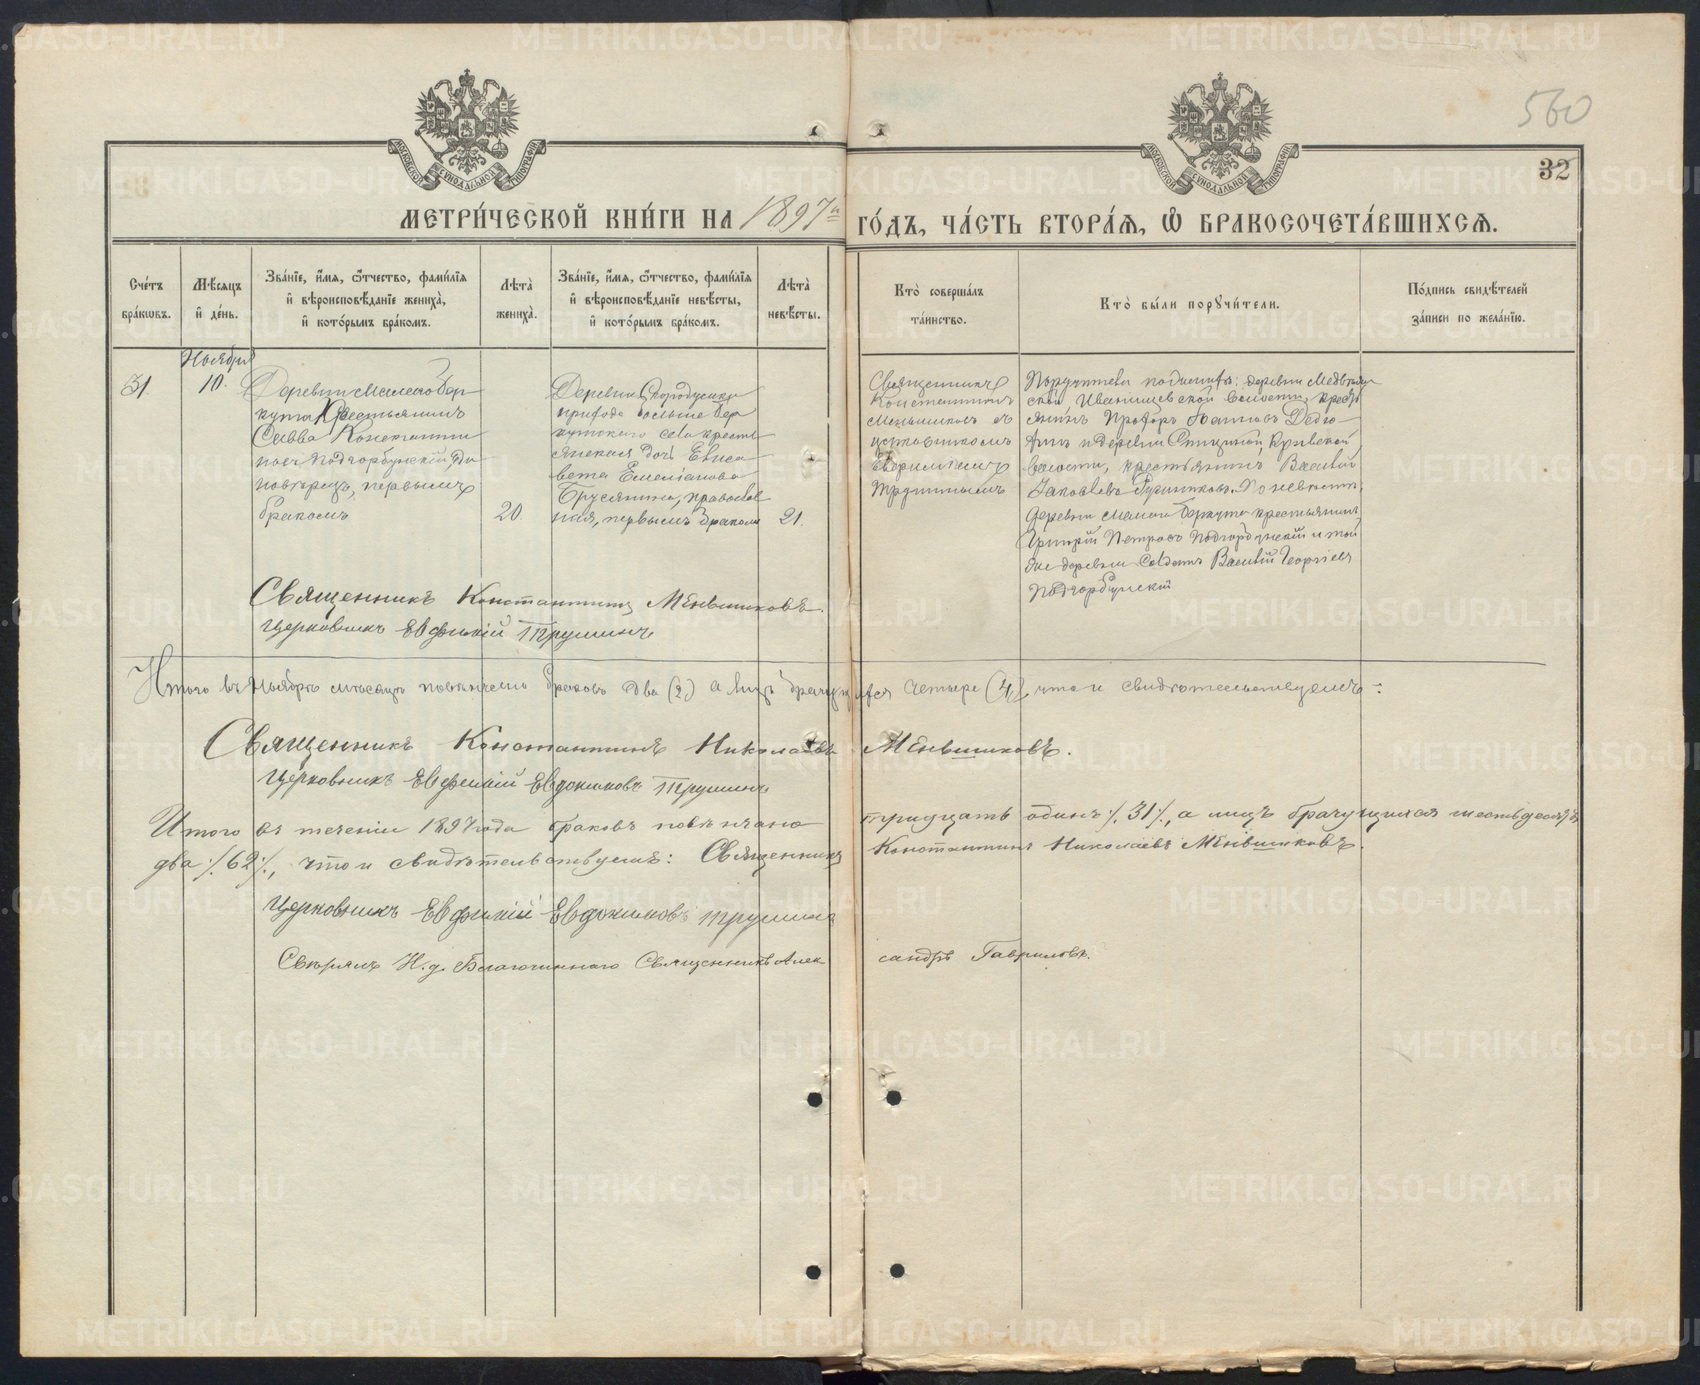 560
32
МЕТРИ́ЧЕСКОЙ КНИ́ГИ НА 1897й ГО́ДЪ, ЧА́СТЬ ВТОРА́Я, Ѡ БРАКОСОЧЕТА́ВШИХСЯ.
Сче́тъ бра́кωвъ.
Мѣ́сяцъ и҆ де́нь.
Зва́нїе, и҆́мя, ѻ҆́тчество, фами́лїя и҆ вѣроисповѣ́данїе жениха̀, и҆ кото́рымъ бра́комъ.
Лѣта̀ жениха̀.
Зва́нїе, и҆́мя, ѻ҆́тчество, фами́лїя и҆ вѣроисповѣ́данїе невѣ́сты, и҆ кото́рымъ бра́комъ.
Лѣта̀ невѣ́сты.
Кто̀ соверша́лъ та́инство.
Кто̀ бы́ли порꙋчи́тели.
По́дпись свидѣ́телей за́писи по жела́нїю.
Ноября
31.
10.
Деревни Малаго Бер
кута Крестьянинъ
Савва Константи
новъ Подгорбунскій, Ѣди
новѣрецъ, первымъ
бракомъ
20
Деревни Скородумки
прихода Больше Бер
кутскаго села кресть
янская дочь Елиса
вета Емельянова
Брусянина, православ
ная, первымъ бракомъ
21.
Священникъ
Константинъ
Меньшиковъ съ
церковникомъ
Евфиміемъ
Трушинымъ
Поручители по жениху: деревни Медвѣжь
ской Иванищевской волости, кресть
янинъ Прохоръ Іоанновъ Дедю
хинъ и деревни Спициной, Кривской
волости, крестьянинъ Василій
Іаковлевъ. По невѣстѣ,
деревни Малаго Беркута крестьянинъ
Григорій Петровъ Подгорбунскій и той
же деревни Солдатъ Василій Георгіевъ
Подгорбунскій
Священникъ Константинъ Меньшиковъ.
Церковникъ Евфимій Трушинъ
Итого въ Ноябрѣ мѣсяцѣ повѣнчано браковъ два (2) а лицъ брачущихся четыре (4), что и свидѣтельствуемъ:
Священникъ Константинъ Николаевъ Меньшиковъ.
Церковникъ Евфимій Евдокимовъ Трушинъ
Итого въ теченіи 1897 года браковъ повѣнчано тридцать одинъ /.31/., а лицъ брачущихся шестьдесятъ
два /.62/., что и свидѣтельствуемъ: Священникъ Константинъ Николаевъ Меньшиковъ.
Церковникъ Евфимій Евдокимовъ Трушинъ
Свѣрялъ И. д. Благочиннаго Священникъ Александръ Гавриловъ.